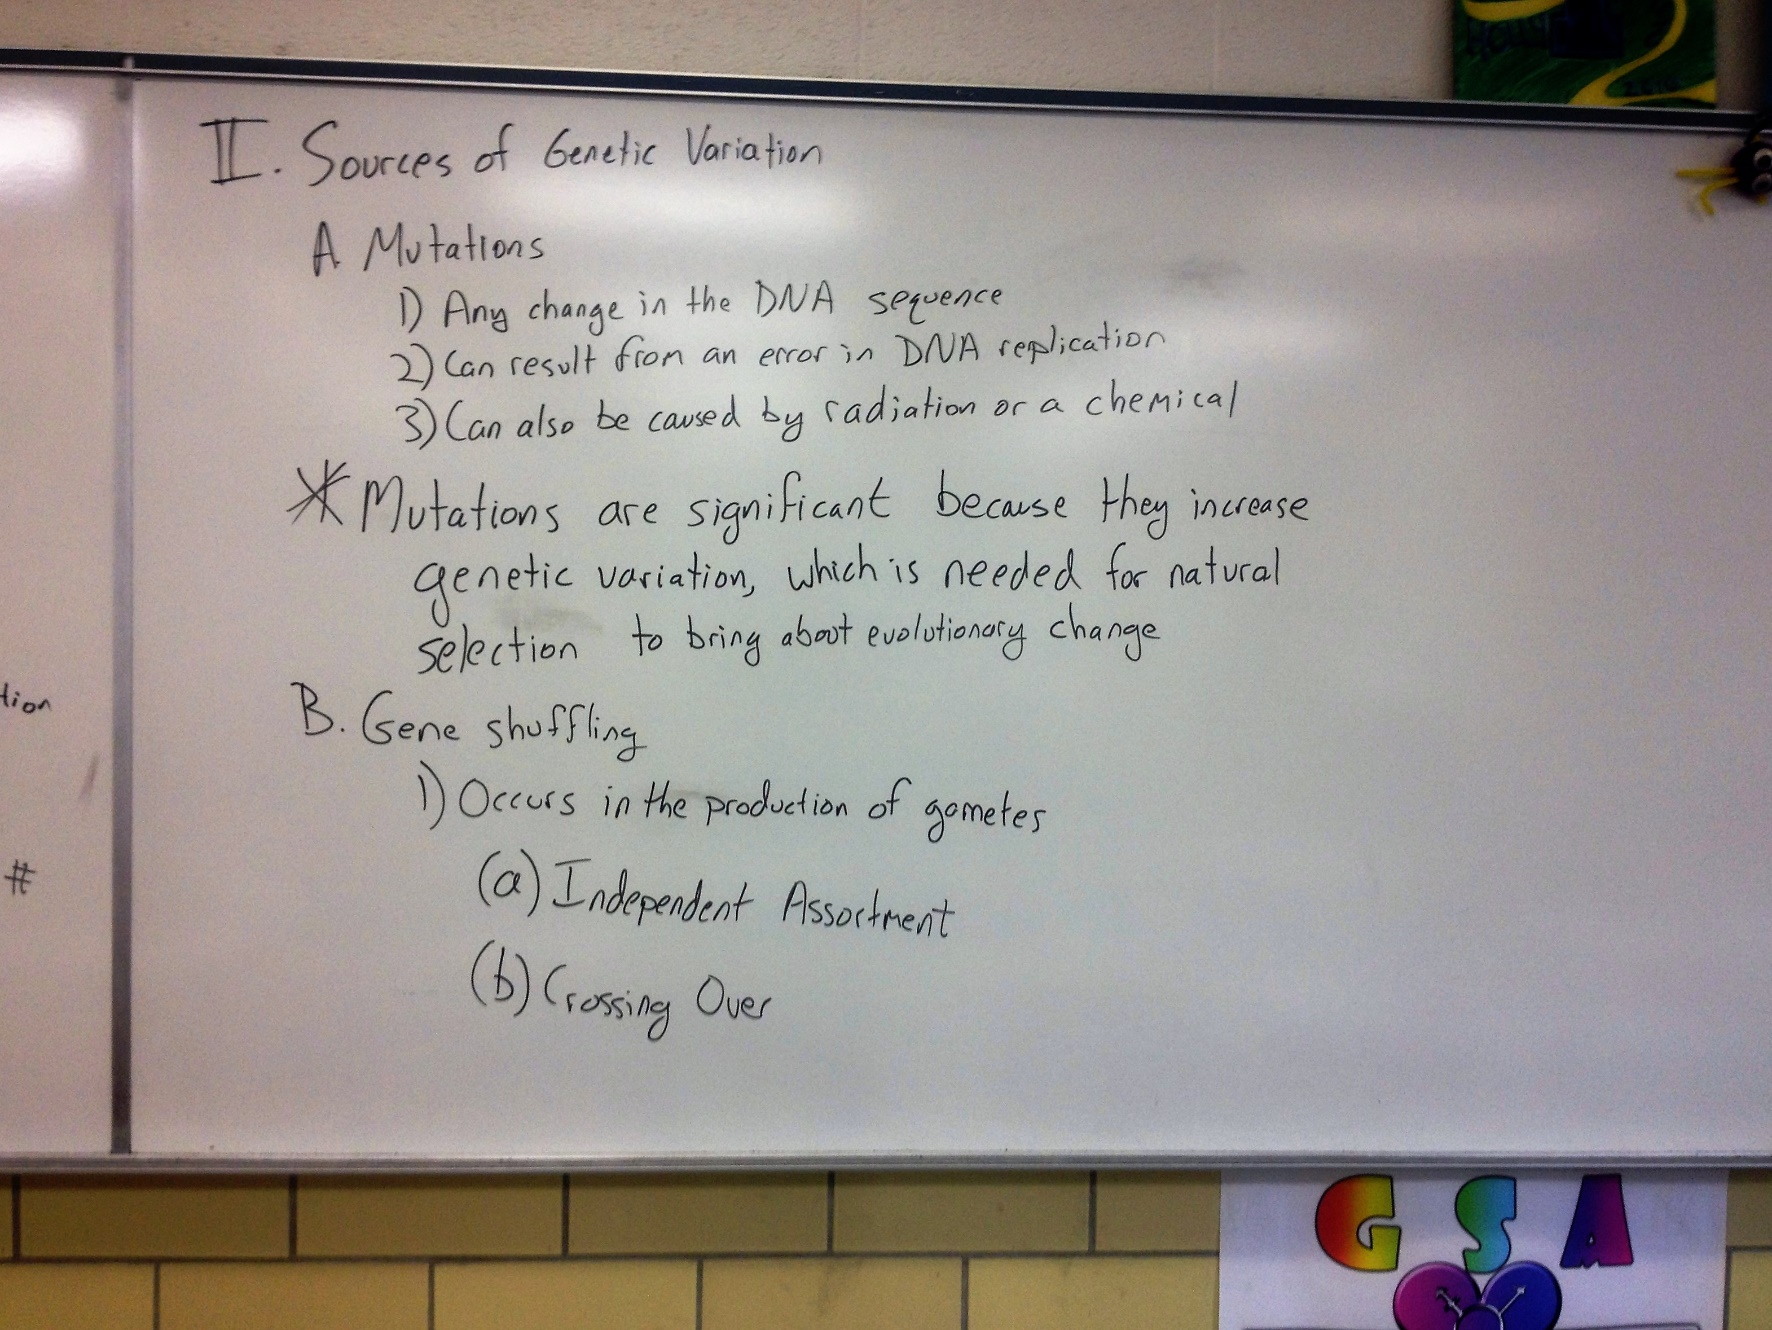 II. Sources of Genetic Variation
A Mutations
1) Any change in the DNA sequence
2) Can result from an error in DNA replication
3) Can also be caused by radiation or a chemical
* Mutations are significant because they increase
genetic variation, which is needed for natural
selection to bring about evolutionary change
B. Gene shuffling
1) Occurs in the production of gametes
(a) Independent Assortment
(b) Crossing Over
tion
#
GSA